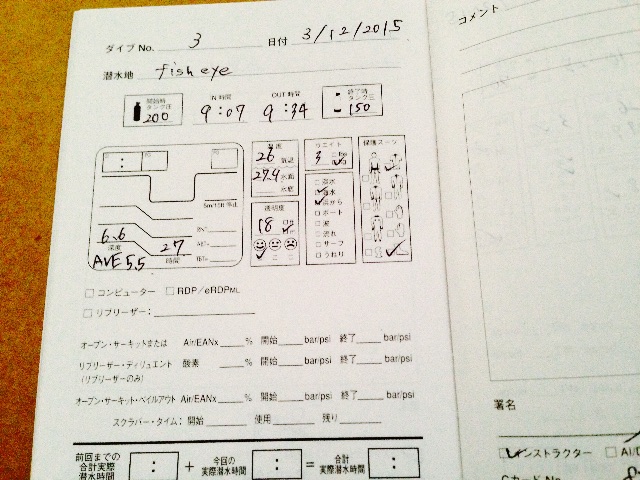 ダイブ No. 3 日付 3/12/2015
潜水地 fish eye
開始時 タンク圧 200
IN 時間 9:07
OUT 時間 9:34
終了時 タンク圧 150
温度
26 気温
27.4 水面
水底
ウエイト
3
保護スーツ
透明度
18
淡水
海水
岸から
ボート
波
流れ
サーフ
うねり
5m/15ft 停止
6.6
深度
AVE 5.5
27
時間
RNT
ABT
TBT
コンピューター RDP/eRDPML
リブリーザー:
オープン・サーキットまたは Air/EANx % 開始 bar/psi 終了 bar/psi
リブリーザー・ディリュエント 酸素 % 開始 bar/psi 終了 bar/psi
(リブリーザーのみ)
オープン・サーキット・ベイルアウト Air/EANx % 開始 bar/psi 終了 bar/psi
スクラバー・タイム:開始 使用 残り
前回までの 合計実際 潜水時間 : + 今回の 実際潜水時間 : = 合計 実際潜水時間 :
コメント
署名
インストラクター
Cカード No.